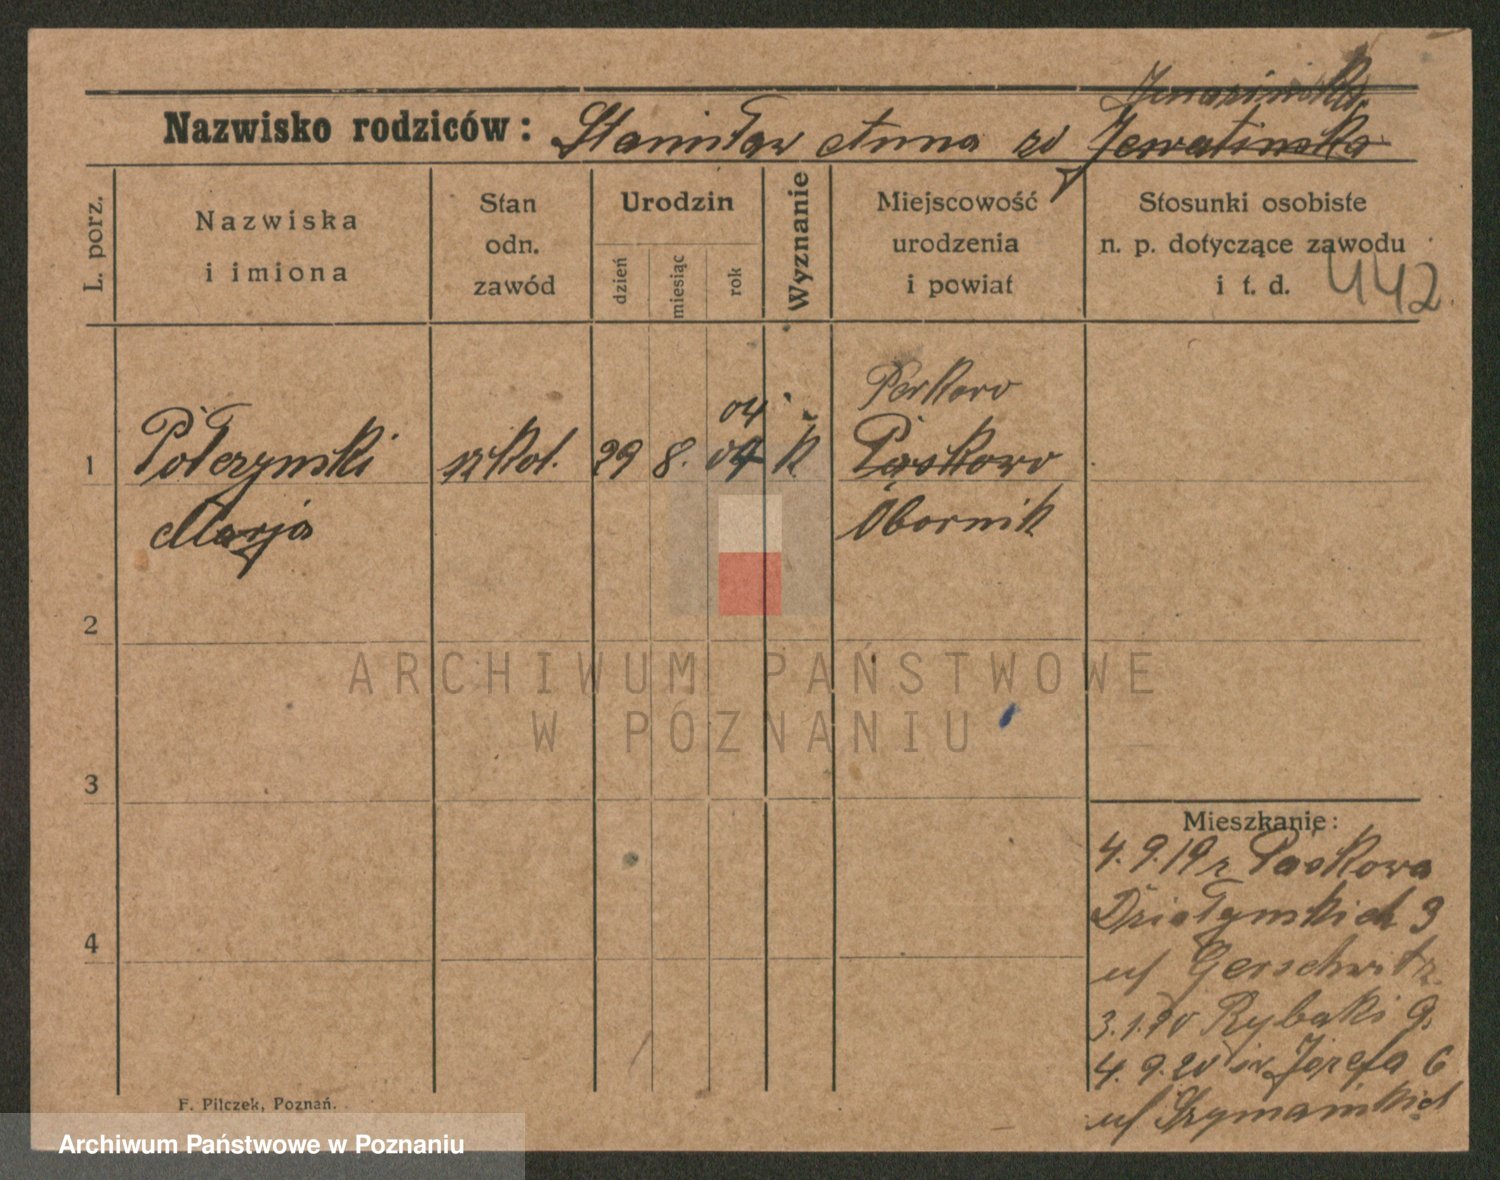 Nazwisko rodziców: Stanisław Anna
L. porz.
Nazwiska
i imiona
Stan
odn.
zawód
Urodzin
dzień
miesiąc
rok
Wyznanie
Miejscowość
urodzenia
i powiat
Stosunki osobiste
n. p. dotyczące zawodu
i t. d.
442
04
1 szkol. 29 8. k Pąskowo
Marja Obornik
2
3
4
ARCHIWUM PAŃSTWOWE
W POZNANIU
Mieszkanie:
4.9.19 z
Działyńskich 3
u/ Gerschwitz
3.1.20 Rybaki 9.
4.9.20 św Józefa 6
u/ Szymańskich
F. Pilczek, Poznań.
Archiwum Państwowe w Poznaniu